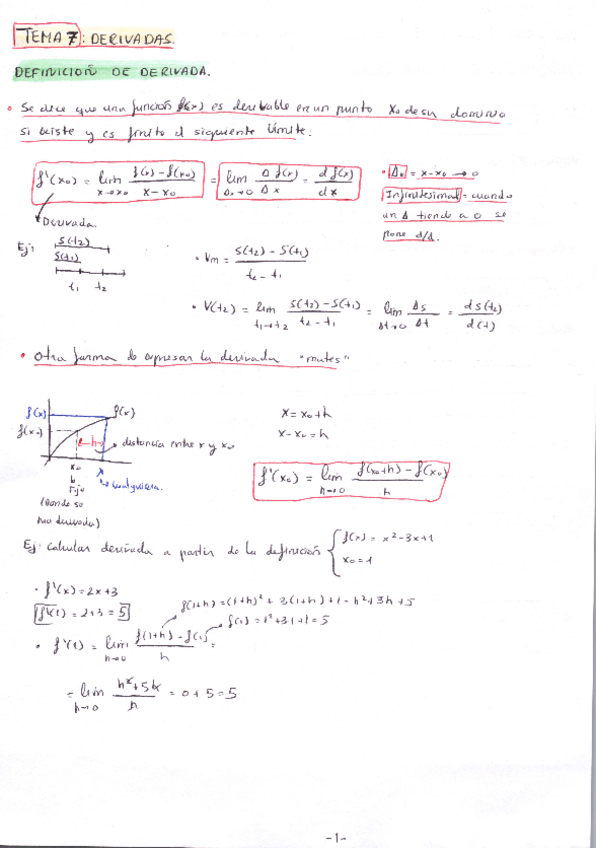 TEMA 7: DERIVADAS.
DEFINICION DE DERIVADA.
• Se dice que una función f(x) es derivable en un punto x₀ de su dominio
si existe y es finito el siguiente límite:
f'(x₀) = lim x→x₀ f(x) - f(x₀) / x - x₀ = lim Δₓ→0 Δ f(x) / Δ x = d f(x) / d x
• Δₓ = x - x₀ → 0
Infinitesimal, cuando
un Δ tiende a 0 se
pone d/d.
Derivada.
Ej:
s(t₂)
s(t₁)
t₁ t₂
• Vm = s(t₂) - s(t₁) / t₂ - t₁
• V(t₂) = lim t₁→t₂ s(t₂) - s(t₁) / t₂ - t₁ = lim Δt→0 Δs / Δt = d s(t₂) / d(t)
• Otra forma de expresar la derivada
f(x) f(x)
f(x₀)
h
distancia entre x y x₀
x₀
Fijo
cualquiera.
(donde se
derivada)
x = x₀ + h
x - x₀ = h
f'(x₀) = lim h→0 f(x₀+h) - f(x₀) / h
Ej: Calcular derivada a partir de la definición { f(x) = x² - 3x + 1
x₀ = 1
• f'(x) = 2x + 3
f'(1) = 2 + 3 = 5
f(1+h) = (1+h)² + 3(1+h) + 1 = h² + 3h + 5
f(1) = 1² + 3·1 + 1 = 5
• f'(1) = lim h→0 f(1+h) - f(1) / h =
= lim h→0 h² + 5h / h = 0 + 5 = 5
-1-